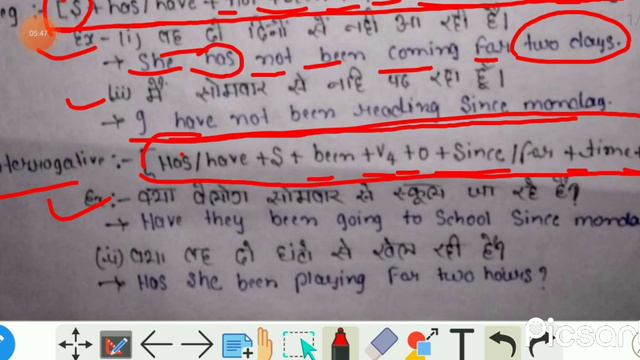 [S + has/have + not + been +
05:47
Ex - (i) वह दो दिनों से नहीं आ रही है।
→ She has not been coming for two days.
(ii) मैं सोमवार से नहि पढ रहा हूँ।
→ I have not been reading Since monday.
terrogative :- [Has/have + S + been + V4 + O + Since/for + time +
Ex :- क्या वेलोग सोमवार से स्कूल जा रहे हैं?
→ Have they been going to School Since monda
(ii) क्या वह दो घंटो से खेल रही है?
→ Has She been playing For two hours?
T
Picsar